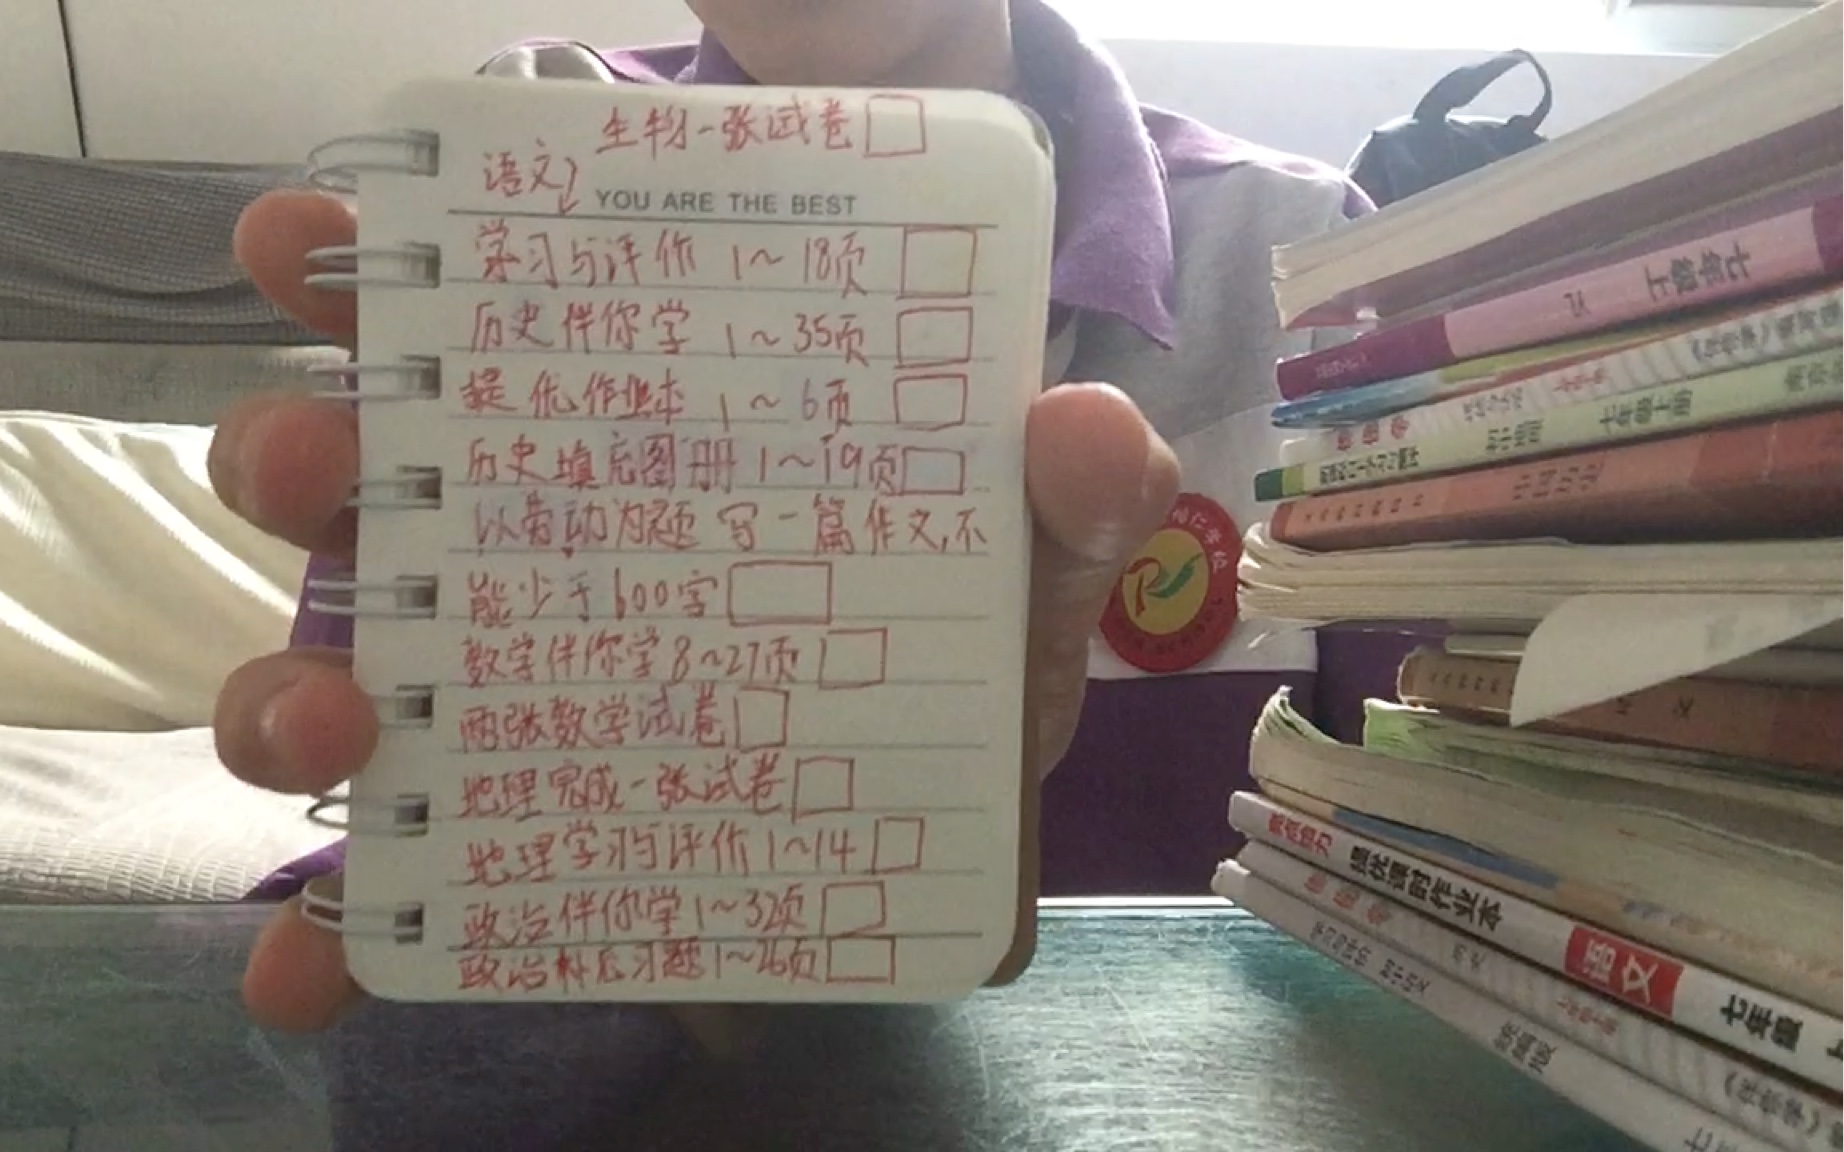 生物一张试卷
语文
YOU ARE THE BEST
学习与评价 1~18页
历史伴你学 1~35页
提优作业本 1~6页
历史填充图册 1~19页
以劳动为题写一篇作文,不
能少于600字
数学伴你学8~27页
两张数学试卷
地理完成一张试卷
地理学习与评价1~14
政治伴你学1~32页
政治补充习题1~26页
七年级上
七年级上册
中国历史
提优课时作业本
语文
七年级